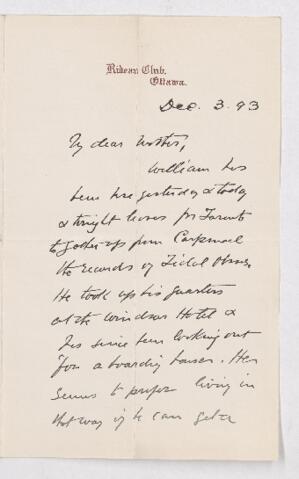 Rideau Club,
Ottawa.
Dec. 3. 93
My dear Mother,
William has
been here yesterday & today
& tonight leaves for Toronto
to gather up from Carpmael
the records of Tidal Obser.
He took up his quarters
at the Windsor Hotel &
has since been looking out
for a boarding house. He
seems to prefer living in
that way if he can get a